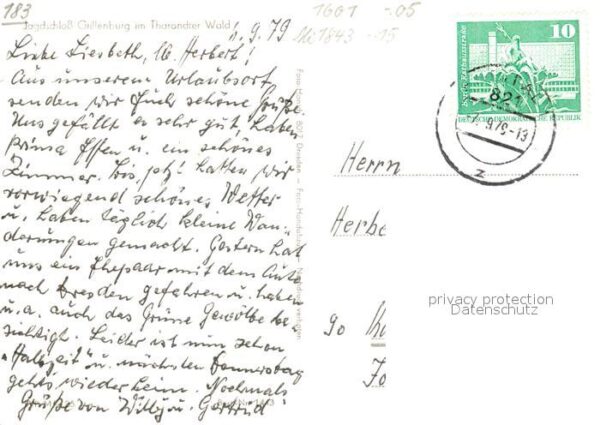 183
Jagdschloß Grillenburg im Tharandter Wald
1601 -05
1843 -15
1.9.79
Liebe Liesbeth, lb. Herbert!
Aus unserem Urlaubsort
senden wir Euch schöne Grüße
Uns gefällt es sehr gut, haben
prima Essen u. ein schönes
Zimmer. Bis jetzt hatten wir
vorwiegend schönes Wetter
u. haben täglich kleine Wan-
derungen gemacht. Gestern hat
uns ein Ehepaar mit dem Auto
nach Dresden gefahren u. haben
u.a. auch das Grüne Gewölbe be-
sichtigt. Leider ist nun schon
"Halbzeit" u. nächsten Donnerstag
gehts wieder heim. Nochmals
Grüße von Willy u. Gertrud
10
DEUTSCHE DEMOKRATISCHE REPUBLIK
821
9.79-13
z
Herrn
Herbe
privacy protection
Datenschutz